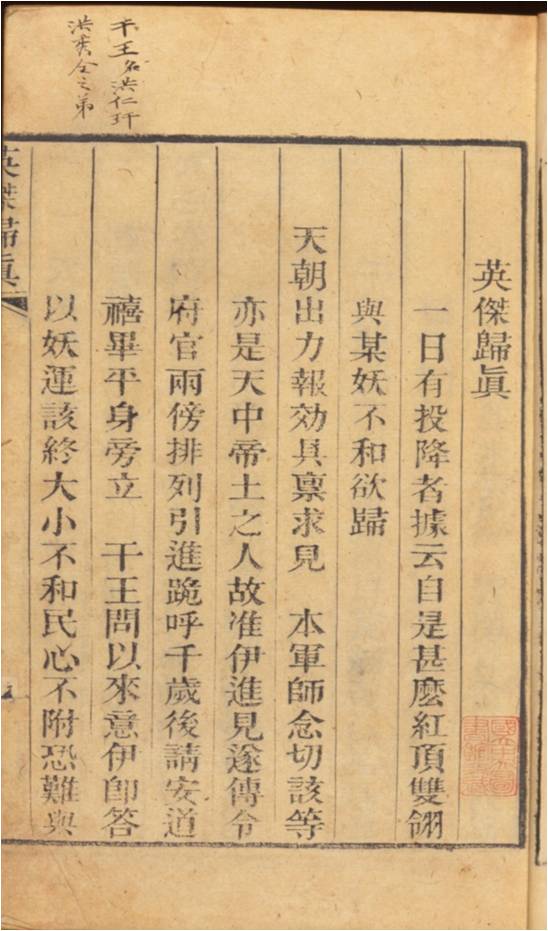 干王名洪仁玕
洪秀全之弟
英傑歸眞
一日有投降者據云自是甚麽紅頂雙翎
與某妖不和欲歸
天朝出力報効具稟求見　本軍師念切該等
亦是天中帝土之人故准伊進見遂傳令
府官兩傍排列引進跪呼千歲後請安道
禧畢平身旁立　干王問以來意伊卽答
以妖運該終大小不和民心不附恐難與
英傑歸眞